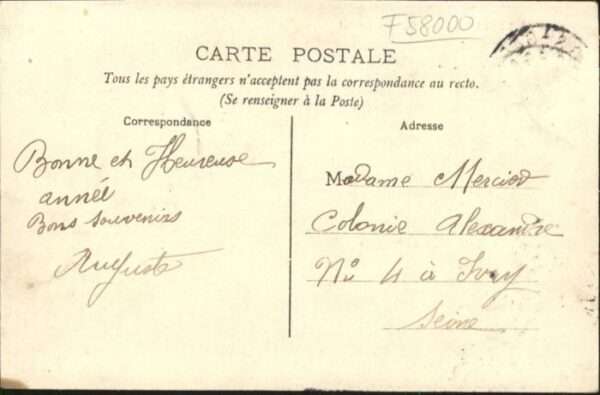 F58000
CARTE POSTALE
Tous les pays étrangers n'acceptent pas la correspondance au recto.
(Se renseigner à la Poste)
Correspondance
Adresse
Bonne et Heureuse
année
Bons souvenirs
Auguste
Madame
Colonie Alexandre
No 4 à Ivry
Seine